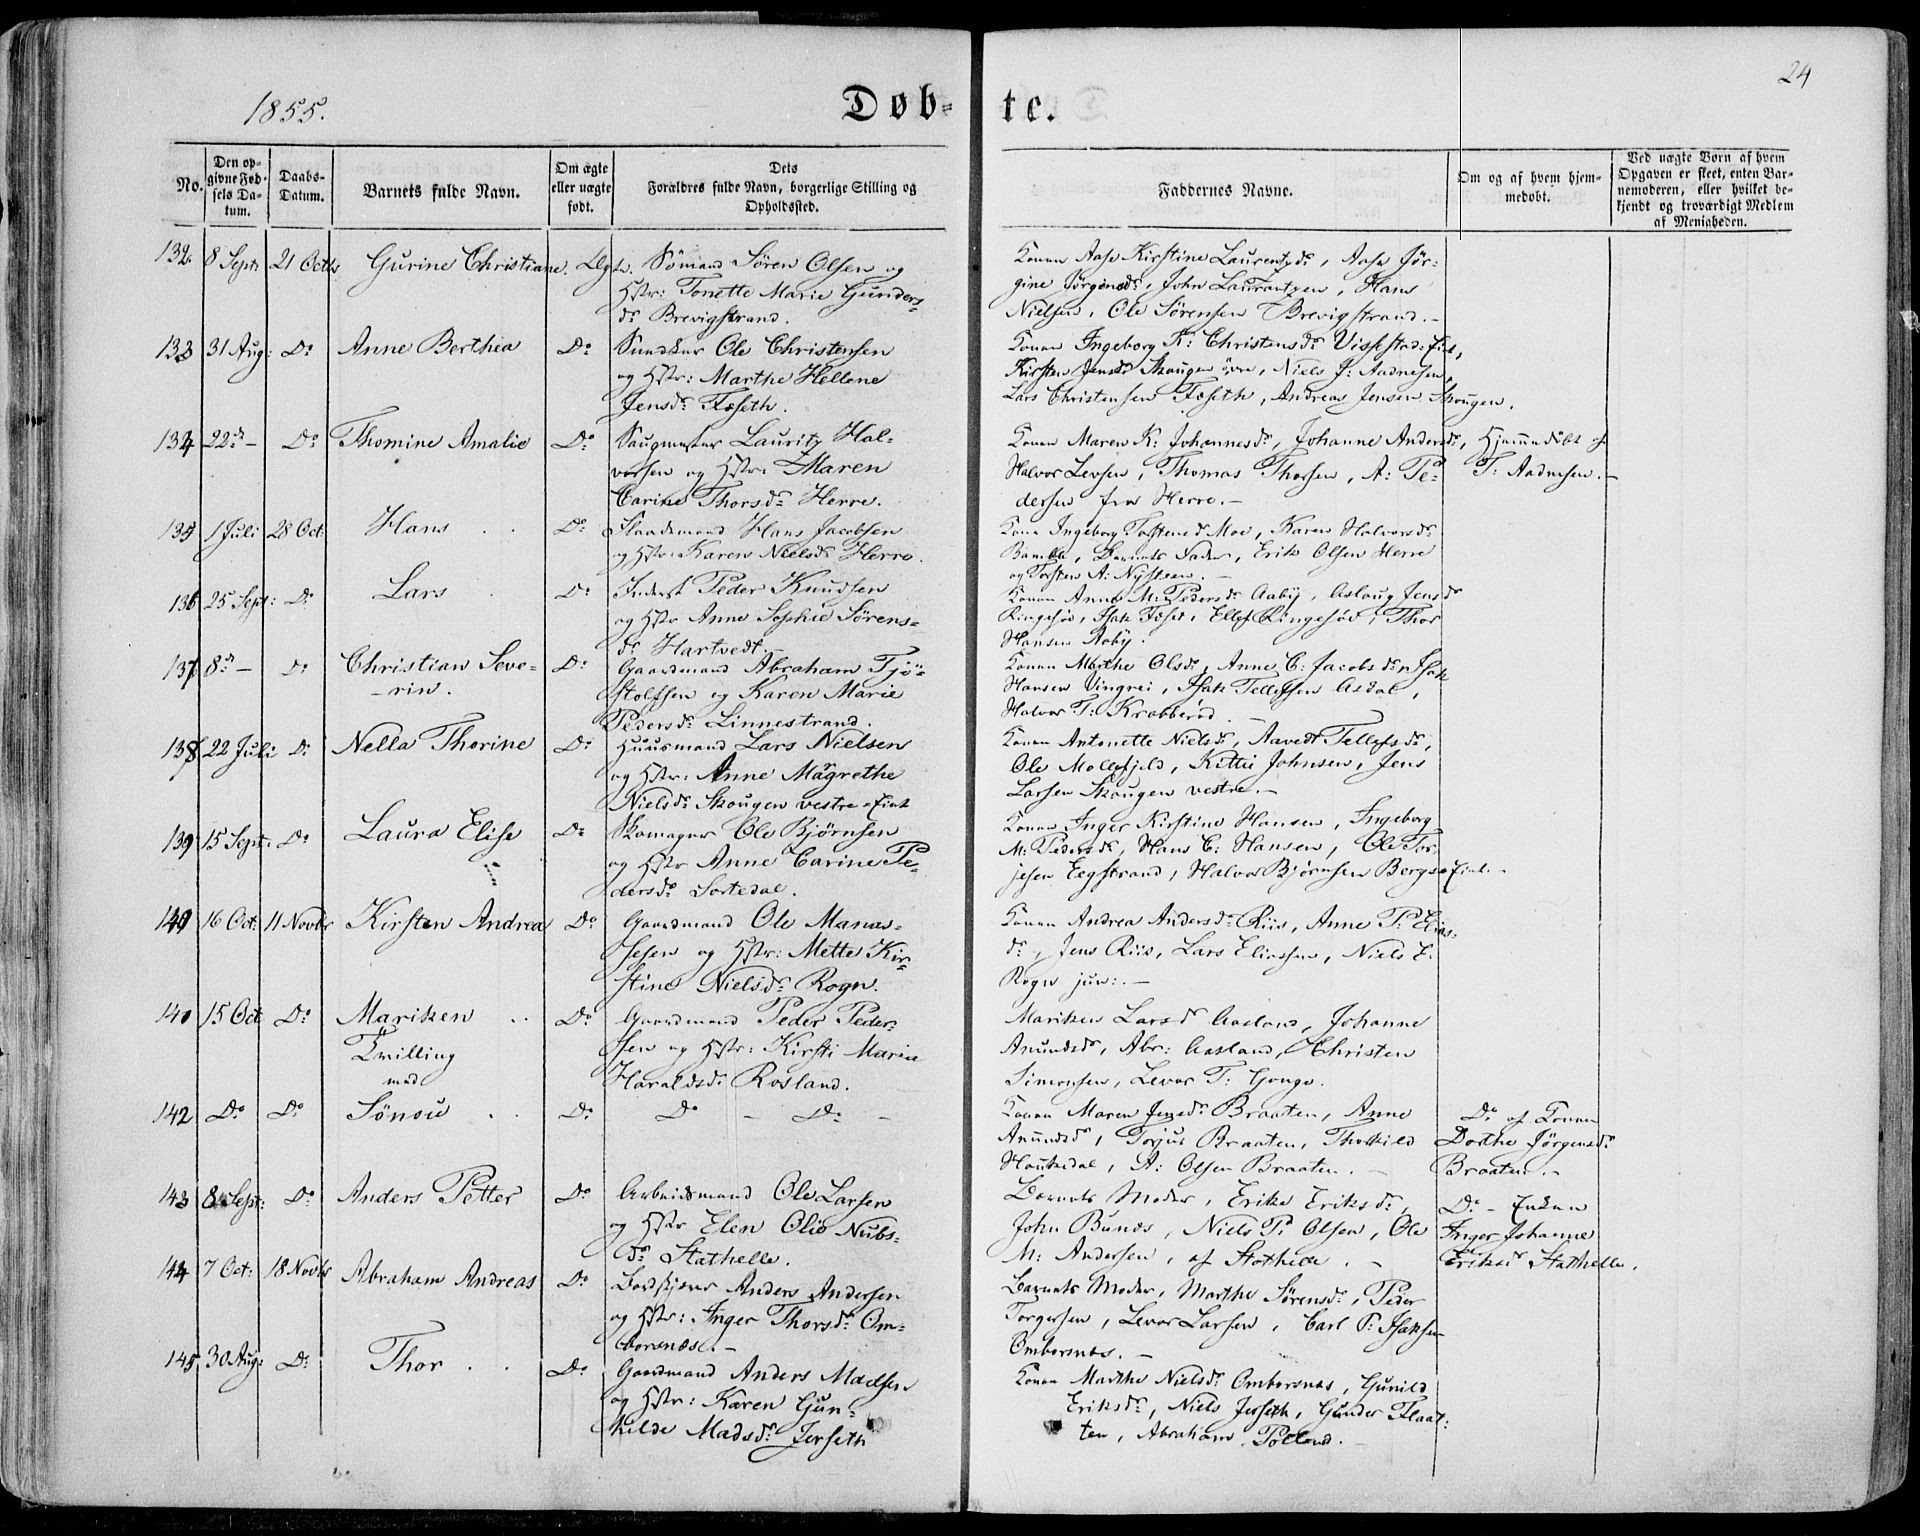 24
1855.
Døb-
te.
No.
Den op-
givne Fød-
sels Da-
tum.
Daabs-
Datum.
Barnets fulde Navn.
Om ægte
eller uægte
født.
Dets
Forældres fulde Navn, borgerlige Stilling og
Opholdssted.
Faddernes Navne.
Om og af hvem hjem-
medøbt.
Ved uægte Børn af hvem
Opgaven er skeet, enten Bar-
nemoderen, eller hvilket be-
kjendt og troværdigt Medlem
af Menigheden.
132. 8 Septr 21 Octbr Gurine Christiane. Ægte. Sömand Sören Olsen og
Hstr: Tonette Marie Gunders-
dr Brevigstrand.
Konen Aase Kirstine Laurentzdr, Aase Jör-
gine Jørgensdr, John Laurantzen, Hans
Nielsen, Ole Sörensen Brevigstrand.-
133 31 Aug: Do Anne Berthea Do Ole Christensen
og Hstr: Marthe Hellene
Jensdr Fæseth.
Konen Ingeborg K: Christensdr Vissestad Eiet,
Kirsten Jensdr Skougen övre, Niels J: Aadnesen,
Lars Christensen Fæseth, Andreas Jensen Skougen.
134 22de - Do Thomine Amalie Do Saugmester Lauritz Hal-
vorsen og Hstr: Maren
Carine Thorsdr Herre.
Konen Maren K: Johannesdr, Johanne Andersdr,
Halvor Levsen, Thomas Thorsen, A: Pe-
dersen fra Herre.-
Hjemmedöbt af
T: Aadnesen.-
135 1 Juli 28 Oct: Hans Do Hans Jacobsen
og Hstr: Karen Nielsdr Herre.
Kone Ingeborg Moe, Karen Halvorsdr
Bamble, Barnets Fader, Erik Olsen Herre
og Torsten A: Nystuen.-
136 25 Sept: Do Lars Do Inderst Peder Knudsen
og Hstr Anne Sophie Sörens-
dr Hartvedt.-
Konen Anne M: Pedersdr Aaby, Aslaug Jensdr
Ringesöd, Isak Fæset, Ellef Ringesöd, Thor
Hansen Aaby.
137 8de - Do Christian Seve-
rin.
Do Gaardmand Abraham Tjö-
stolfsen og Karen Marie
Pedersdr Linnestrand.
Konen Marthe Olsdr, Anne C: Jacobsdr, Isak
Hansen Vingrei, Isak Tellefsen Asdal,
Halvor T: Krabberöd.-
138 22 Juli Do Nella Thorine Do Huusmand Lars Nielsen
og Hstr: Anne Magrethe
Nielsdr Skougen vestre Eiet
Konen Antonette Nielsdr, Aavedt Tellefsdr,
Ole Mollefjeld, Kittil Johnsen, Jens
Larsen Skougen vestre.-
139 15 Sept: Do Laura Elise Do Skomager Ole Björnsen
og Hstr Anne Carine Pe-
dersdr Sortedal.
Konen Inger Kirstine Hansen, Ingeborg
M: Pedersdr, Hans C: Hansen, Ole Tor-
jesen Eegstrand, Halvor Björnsen Bergs Eiet.-
140 16 Oct: 11 Novbr Kirsten Andrea Do Gaardmand Ole Manas-
sesen og Hstr: Mette Kir-
stine Nielsdr Rogn.
Konen Andrea Andersdr Riis, Anne P: Elias-
dr, Jens Riis, Lars Eliassen, Niels E.
Rogn jun:.-
140 15 Oct Do Mariken
Tvilling
med
Do Gaardmand Peder Peder-
sen og Hstr: Kirsti Maria
Haraldsdr Rosland.
Mariken Larsdr Aasland, Johanne
Anundsdr, Abr: Aasland, Christen
Simonsen, Levor T: Gonge.
142 Do Do Sönou Do Do - Do -
Konen Maren Jensdr Braaten, Anne
Anundsdr, Torjus Braaten, Thorkild
Haukedal, A: Olsen Braaten.-
Do af Konen
Dorthe Jörgensdr
Braaten.-
143 8 Sept: Do Anders Petter Do Arbeidsmand Ole Larsen
og Hstr Elen Olie Nubs-
dr Stathelle.
Barnets Moder, Erike Eriksdr,
John Bunæs, Niels P: Olsen, Ole
M: Andersen, af Stathelle.-
Do - Enken
Inger Johanne
Eriksdr Stathelle.
144 7 Oct: 18 Novbr Abraham Andreas Do Anders Andersen
og Hstr: Inger Thorsdr Om-
borsnæs.-
Barnets Moder, Marthe Sörensdr, Peder
Torgersen, Levor Larsen, Carl P: Isaksen
Omborsnæs.-
145 30 Aug: Do Thor Do Gaardmand Anders Madsen
og Hstr: Karen Gun-
hilde Madsdr Jerseth
Konen Marthe Nielsdr Omborsnæs, Gunild
Eriksdr, Niels Jerseth, Gunder Flaat-
ten, Abraham Tolland.-